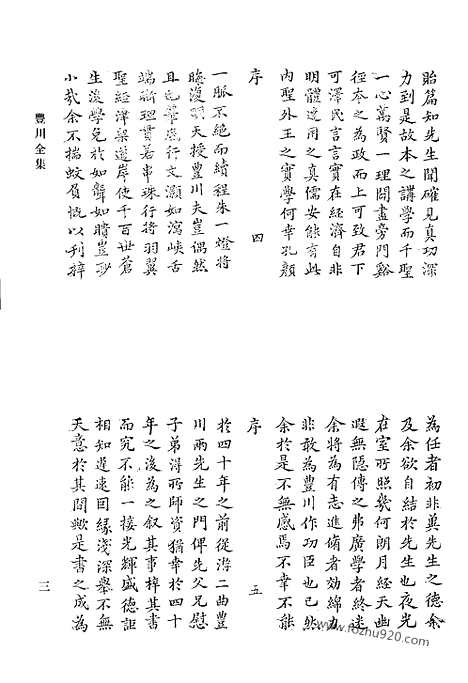 貽篇知先生聞確見真功深
力到是故本之講學而千聖
一心萬賢一理闢盡旁門谿
徑本之為政而上可致君下
可澤民言言實在經濟自非
明體達用之真儒安能有此
內聖外王之實學何幸孔顏
序
四
一脈不絕而續程朱一燈將
晦復明天授豐川夫豈偶然
且也筆底行文灝如瀉峽舌
端晰理貫若串珠行將羽翼
聖經津梁道岸使千百世蒼
生後學免於如聾如瞶豈眇
小哉余不揣蚊負慨以刊梓
豐川全集
為任者初非冀先生之德余
及余欲自結於先生也夜光
在室所照幾何朗月經天幽
遐無隱傳之弗廣學者終迷
余將為有志進脩者効綿力
非敢為豐川作功臣也已然
余於是不無感焉不幸不能
序
五
於四十年之前從游二曲豐
川兩先生之門俾先父兄慰
子弟得所師資猶幸於四十
年之後為之叙其事梓其書
而究不能一接光輝盛德詎
相知遲速因緣淺深舉不無
天意於其間歟是書之成為
三
www.fozhu920.com